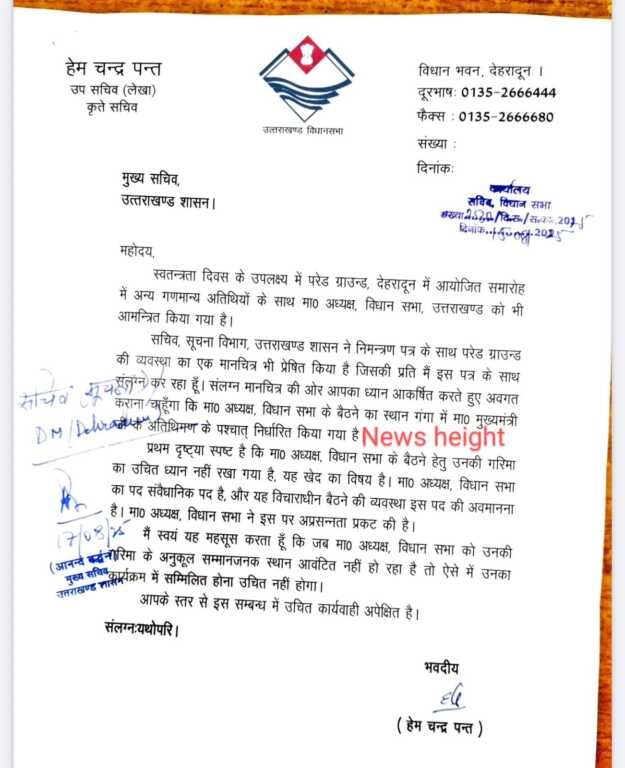 हेम चन्द्र पन्त
उप सचिव (लेखा)
कृते सचिव
उत्तराखण्ड विधानसभा
विधान भवन, देहरादून ।
दूरभाषः 0135-2666444
फैक्स : 0135-2666680
संख्या :
दिनांकः
कार्यालय
सचिव, विधान सभा
मुख्य सचिव,
उत्तराखण्ड शासन।
महोदय,
स्वतन्त्रता दिवस के उपलक्ष्य में परेड ग्राउन्ड, देहरादून में आयोजित समारोह
में अन्य गणमान्य अतिथियों के साथ मा0 अध्यक्ष, विधान सभा, उत्तराखण्ड को भी
आमन्त्रित किया गया है।
सचिव, सूचना विभाग, उत्तराखण्ड शासन ने निमन्त्रण पत्र के साथ परेड ग्राउन्ड
की व्यवस्था का एक मानचित्र भी प्रेषित किया है जिसकी प्रति मैं इस पत्र के साथ
संलग्न कर रहा हूँ। संलग्न मानचित्र की ओर आपका ध्यान आकर्षित करते हुए अवगत
कराना चाहूँगा कि मा0 अध्यक्ष, विधान सभा के बैठने का स्थान गंगा में मा0 मुख्यमंत्री
के अतिथिगण के पश्चात् निर्धारित किया गया है
News height
प्रथम दृष्ट्या स्पष्ट है कि मा0 अध्यक्ष, विधान सभा के बैठने हेतु उनकी गरिमा
का उचित ध्यान नहीं रखा गया है, यह खेद का विषय है। मा0 अध्यक्ष, विधान सभा
का पद संवैधानिक पद है, और यह विचाराधीन बैठने की व्यवस्था इस पद की अवमानना
है। मा0 अध्यक्ष, विधान सभा ने इस पर अप्रसन्नता प्रकट की है।
मैं स्वयं यह महसूस करता हूँ कि जब मा0 अध्यक्ष, विधान सभा को उनकी
गरिमा के अनुकूल सम्मानजनक स्थान आवंटित नहीं हो रहा है तो ऐसे में उनका
कार्यक्रम में सम्मिलित होना उचित नहीं होगा।
आपके स्तर से इस सम्बन्ध में उचित कार्यवाही अपेक्षित है।
संलग्नःयथोपरि।
सचिव सूचना
DM/Dehradun
(आनन्द बर्द्धन)
मुख्य सचिव
उत्तराखण्ड शासन
भवदीय
( हेम चन्द्र पन्त )